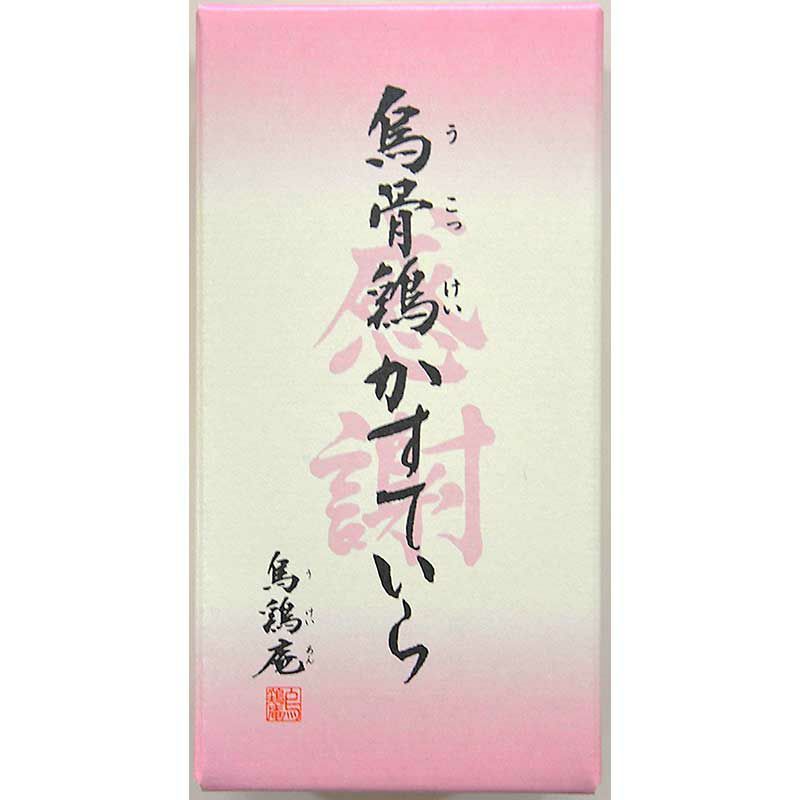 烏骨鶏かすていら
うこっけい
感謝
烏鶏庵
うけいあん
烏鶏庵